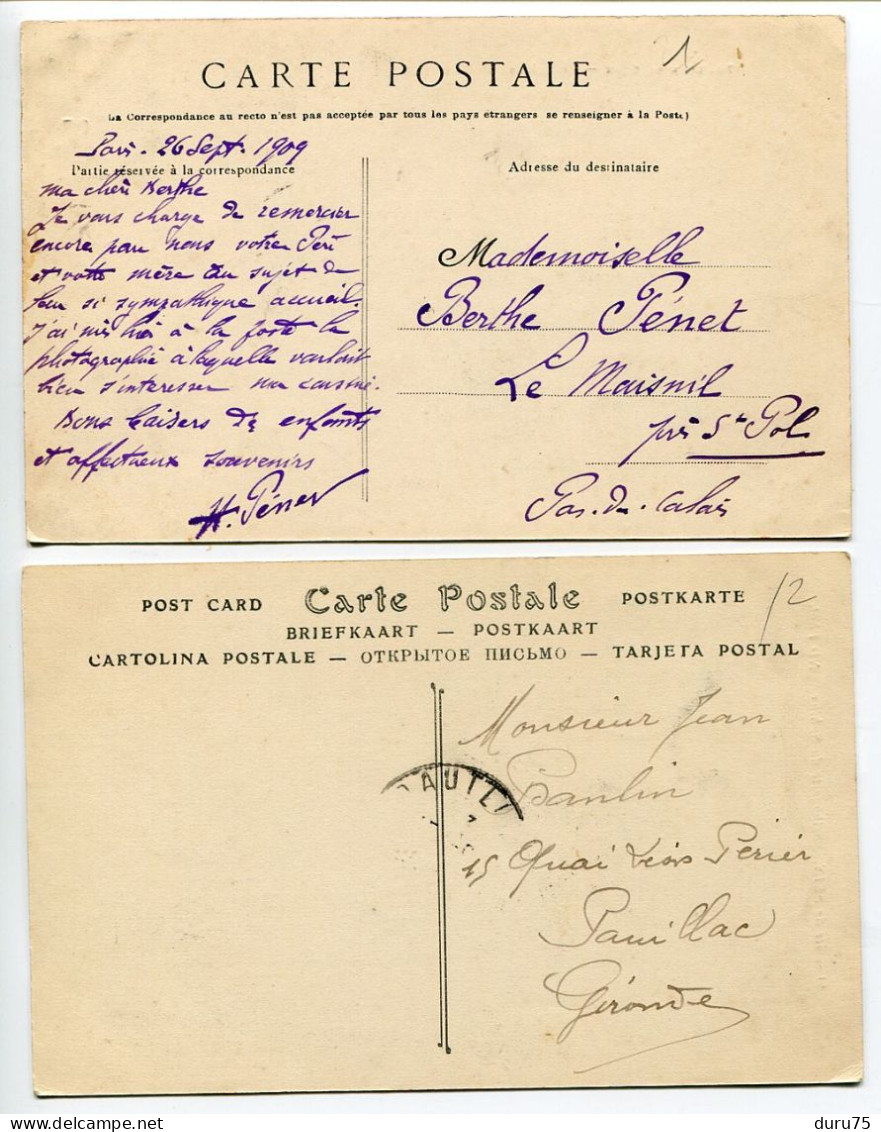 1
CARTE POSTALE
La Correspondance au recto n'est pas acceptée par tous les pays étrangers se renseigner à la Poste)
Paris - 26 Sept. 1909
Partie réservée à la correspondance
Adresse du destinataire
ma chère Berthe
Je vous charge de remercier
encore pour nous votre Père
et votre mère au sujet de
leur si sympathique accueil.
J'ai mis hier à la poste la
photographie à laquelle voulait
bien s'intéresser ma cousine.
Bons baisers de enfants
et affectueux souvenirs
H. Pénet
Mademoiselle
Berthe Pénet
Le Maisnil
près St Pol
Pas-de-Calais
POST CARD Carte Postale POSTKARTE
2
BRIEFKAART — POSTKAART
CARTOLINA POSTALE — ОТКРЫТОЕ ПИСЬМО — TARJETA POSTAL
Monsieur Jean
Banlin
15 Quai Léon Périer
Pauillac
Gironde
delcampe.net
duru75